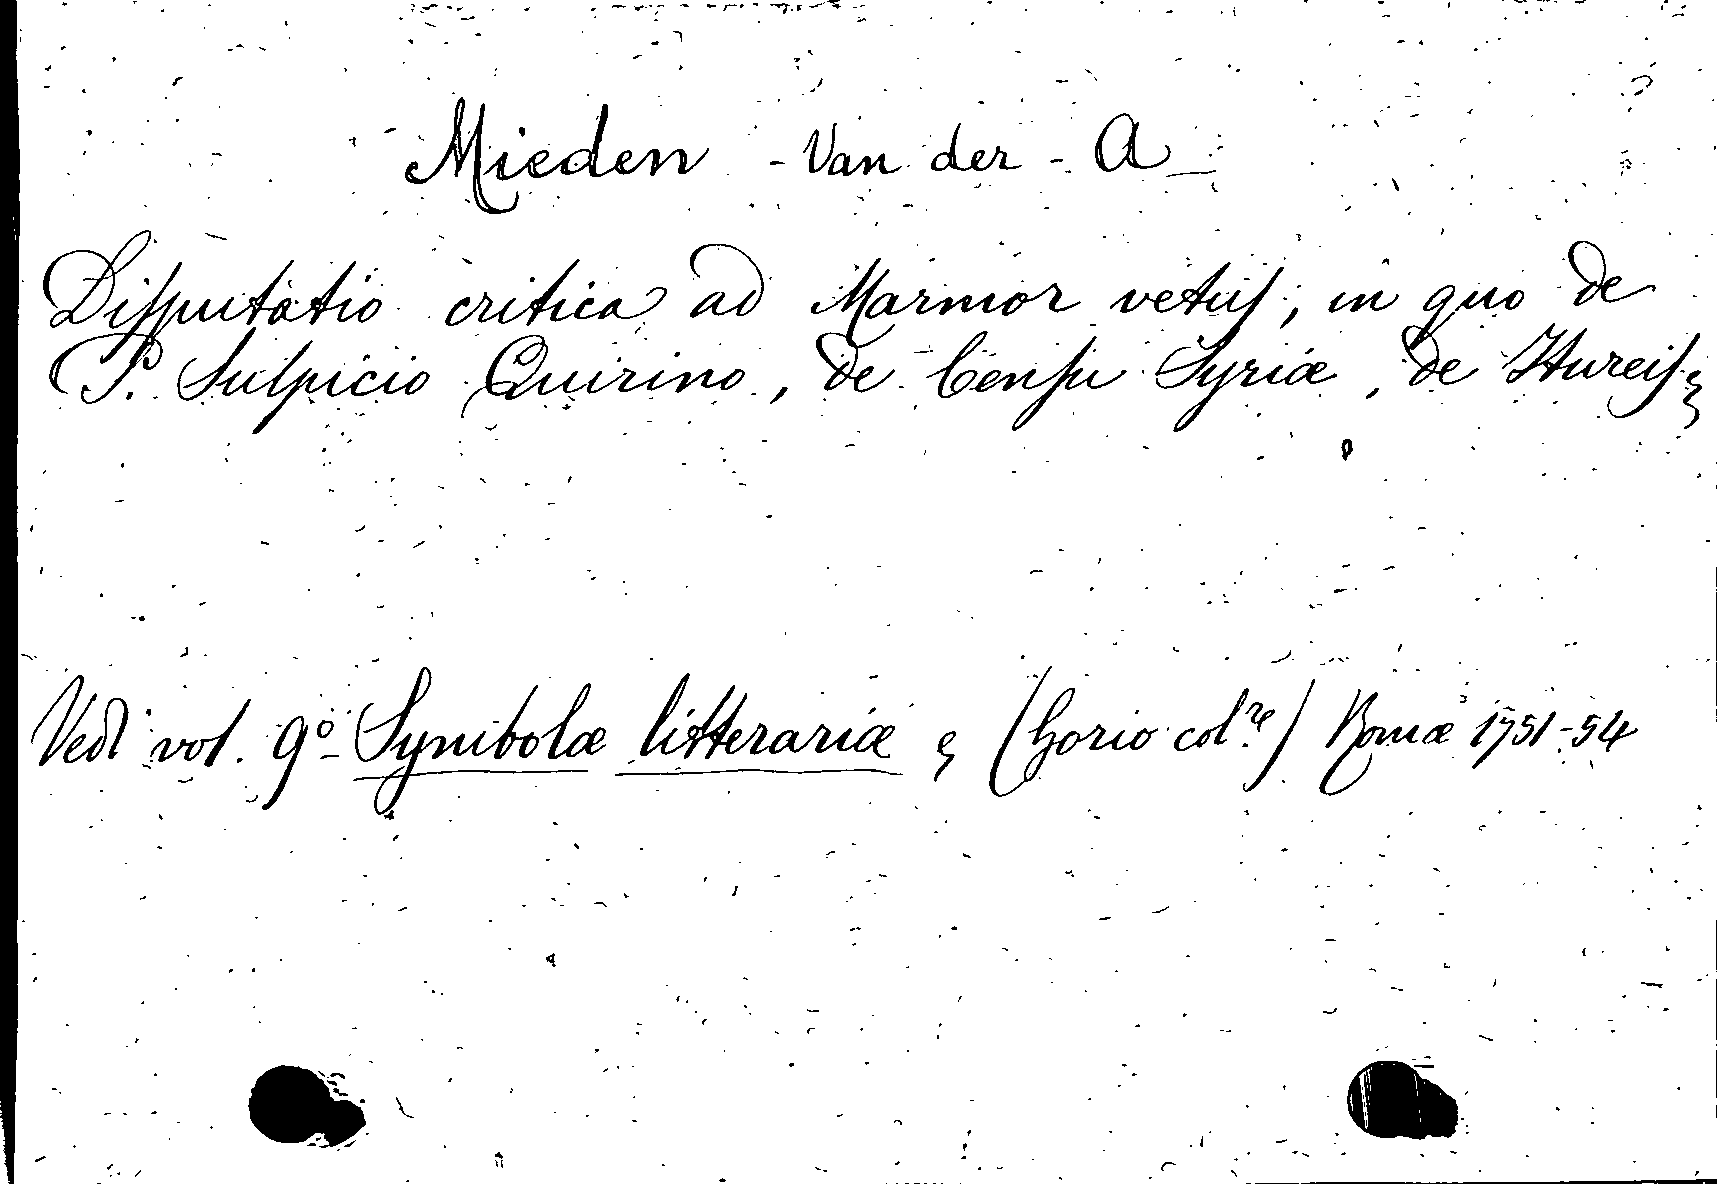 Mieden - Van der - A
Disputatio critica ad Marmor vetus, in quo de
P. Sulpicio Quirino, de Censu Syriæ, de Itureis &
Vedi vol. 9º Symbolæ litterariæ & (Gorio col.re) Romæ 1751-54